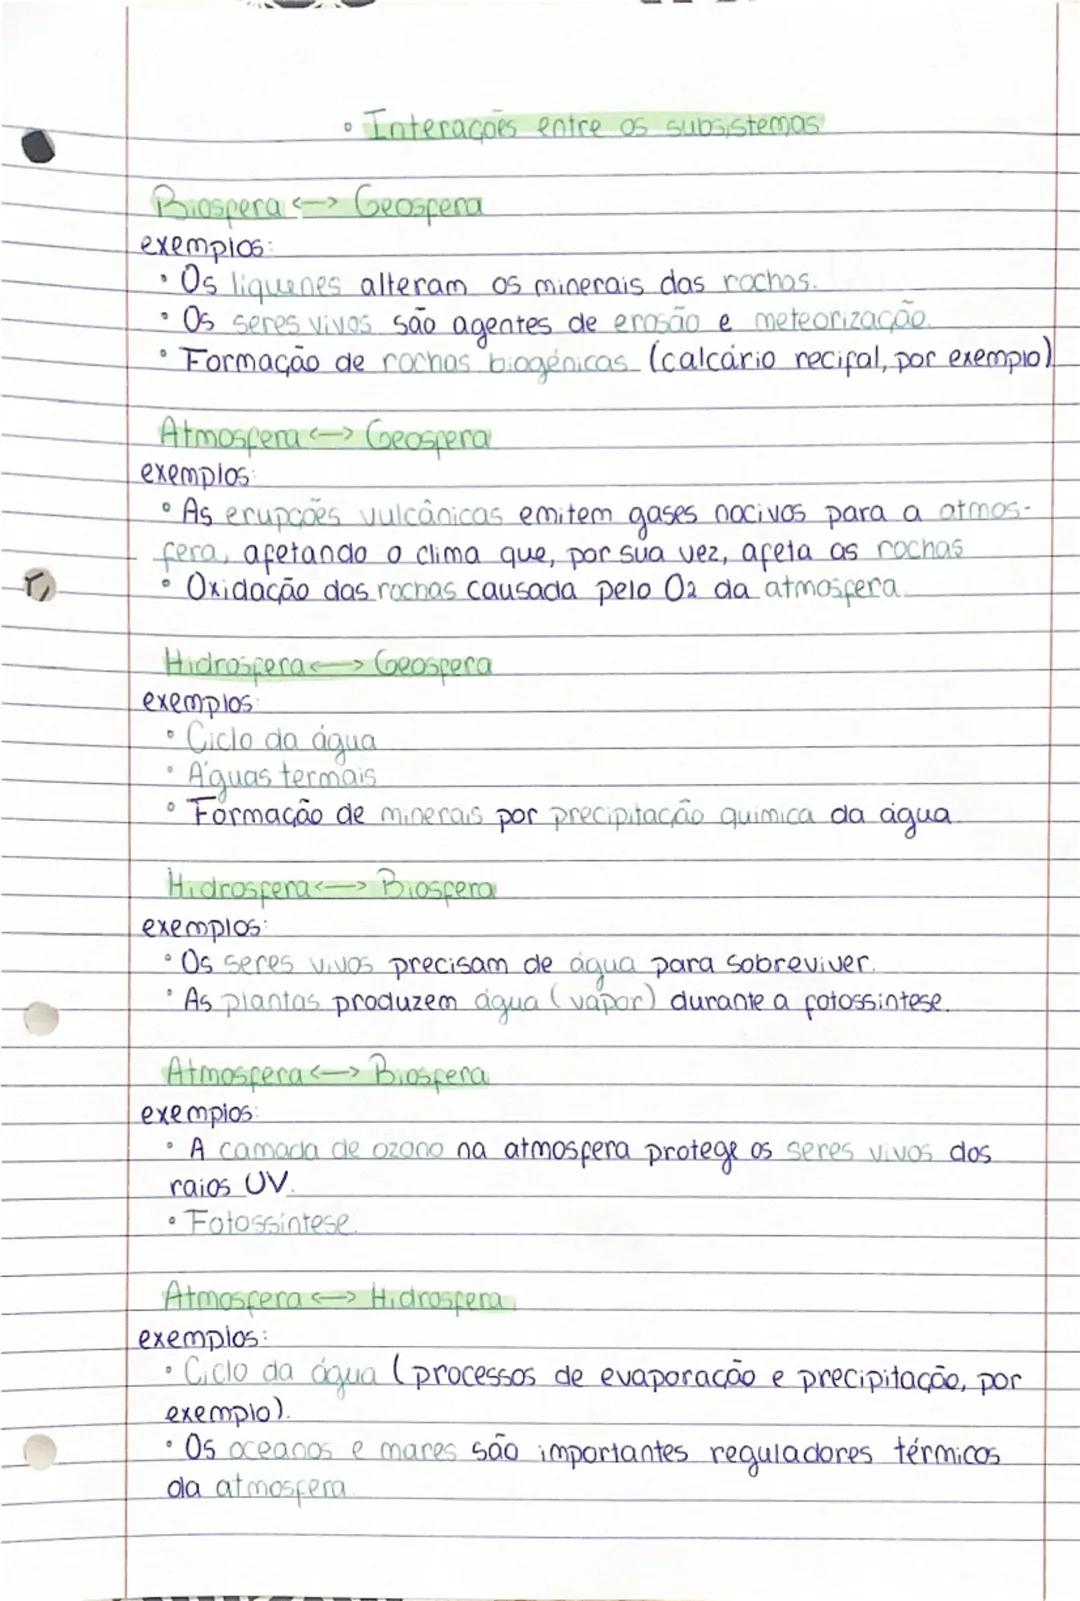 • Interações entre os subsistemas
Biosfera <—> Geosfera
exemplos:
• Os líquenes alteram os minerais das rochas.
• Os seres vivos são agentes de erosão e meteorização.
• Formação de rochas biogénicas (calcário recifal, por exemplo)
Atmosfera <—> Geosfera
exemplos:
• As erupções vulcânicas emitem gases nocivos para a atmos-
fera, afetando o clima que, por sua vez, afeta as rochas
• Oxidação das rochas causada pelo O2 da atmosfera.
Hidrosfera <—> Geosfera
exemplos:
• Ciclo da água
• Águas termais
• Formação de minerais por precipitação química da água.
Hidrosfera <—> Biosfera
exemplos:
• Os seres vivos precisam de água para sobreviver.
• As plantas produzem água (vapor) durante a fotossíntese.
Atmosfera <—> Biosfera
exemplos:
• A camada de ozono na atmosfera protege os seres vivos dos
raios UV.
• Fotossíntese.
Atmosfera <—> Hidrosfera
exemplos:
• Ciclo da água (processos de evaporação e precipitação, por
exemplo).
• Os oceanos e mares são importantes reguladores térmicos
da atmosfera.